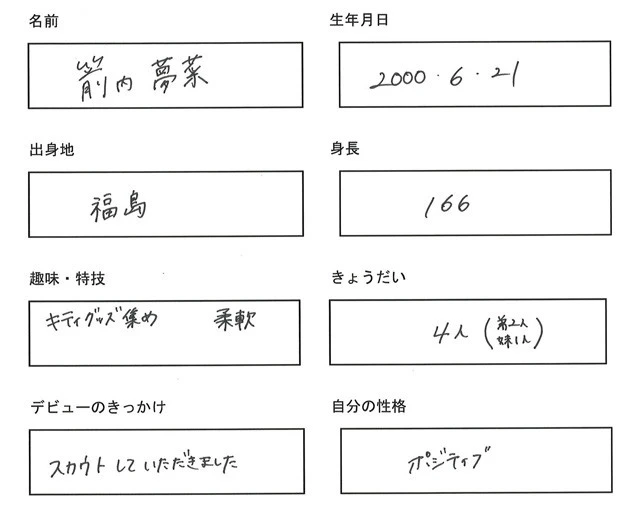 名前
箭内 夢菜
生年月日
2000・6・21
出身地
福島
身長
166
趣味・特技
キティグッズ集め 柔軟
きょうだい
4人 (弟2人
妹1人)
デビューのきっかけ
スカウトしていただきました
自分の性格
ポジティブ